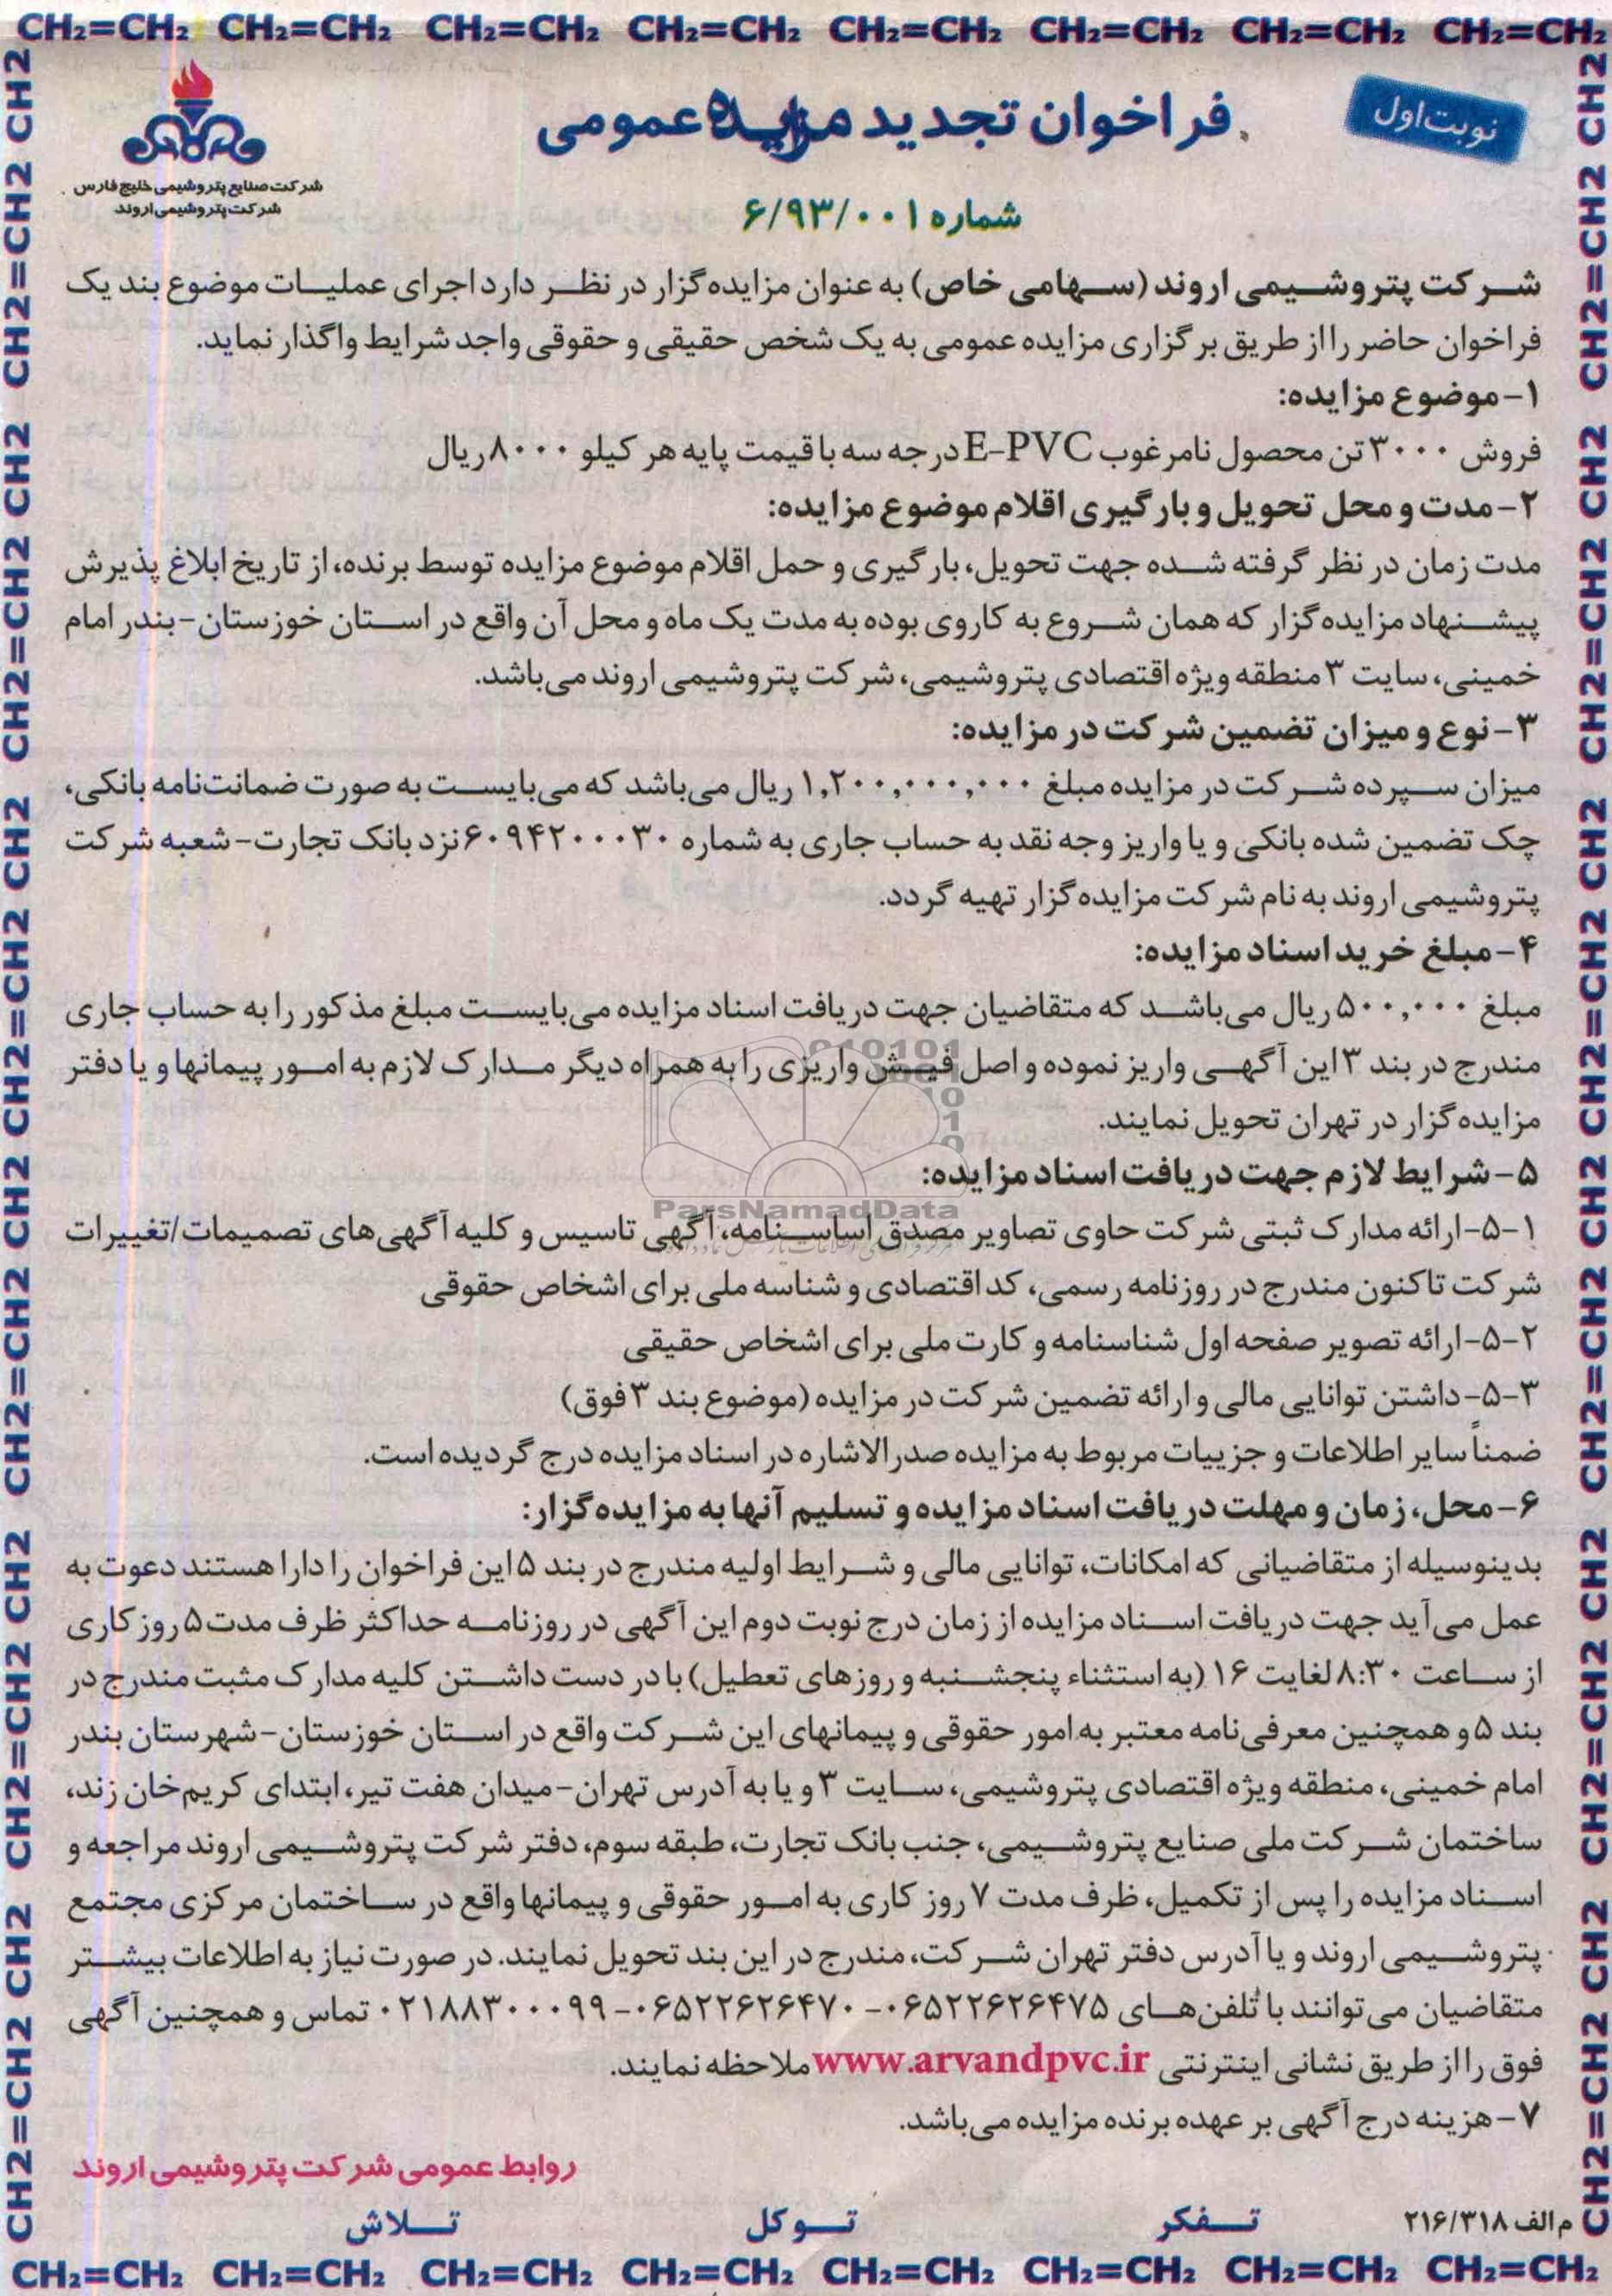 CH₂=CH₂ CH₂=CH₂ CH₂=CH₂ CH₂=CH₂ CH₂=CH₂ CH₂=CH₂ CH₂=CH₂ CH₂=CH₂
نوبت اول
فراخوان تجدید مزایده عمومی
شرکت صنایع پتروشیمی خلیج فارس
شرکت پتروشیمی اروند
شماره ۶/۹۳/۰۰۱
شرکت پتروشیمی اروند (سهامی خاص) به عنوان مزایده‌گزار در نظر دارد اجرای عملیات موضوع بند یک
فراخوان حاضر را از طریق برگزاری مزایده عمومی به یک شخص حقیقی و حقوقی واجد شرایط واگذار نماید.
۱- موضوع مزایده:
فروش ۳۰۰۰ تن محصول نامرغوب E-PVC درجه سه با قیمت پایه هر کیلو ۸۰۰۰ ریال
۲- مدت و محل تحویل و بارگیری اقلام موضوع مزایده:
مدت زمان در نظر گرفته شده جهت تحویل، بارگیری و حمل اقلام موضوع مزایده توسط برنده، از تاریخ ابلاغ پذیرش
پیشنهاد مزایده‌گزار که همان شروع به کار وی بوده به مدت یک ماه و محل آن واقع در استان خوزستان-بندر امام
خمینی، سایت ۳ منطقه ویژه اقتصادی پتروشیمی، شرکت پتروشیمی اروند می‌باشد.
۳- نوع و میزان تضمین شرکت در مزایده:
میزان سپرده شرکت در مزایده مبلغ ۱,۲۰۰,۰۰۰,۰۰۰ ریال می‌باشد که می‌بایست به صورت ضمانت‌نامه بانکی،
چک تضمین شده بانکی و یا واریز وجه نقد به حساب جاری به شماره ۶۰۹۴۲۰۰۰۳۰ نزد بانک تجارت-شعبه شرکت
پتروشیمی اروند به نام شرکت مزایده‌گزار تهیه گردد.
۴- مبلغ خرید اسناد مزایده:
مبلغ ۵۰۰,۰۰۰ ریال می‌باشد که متقاضیان جهت دریافت اسناد مزایده می‌بایست مبلغ مذکور را به حساب جاری
مندرج در بند ۳ این آگهی واریز نموده و اصل فیش واریزی را به همراه دیگر مدارک لازم به امور پیمانها و یا دفتر
مزایده‌گزار در تهران تحویل نمایند.
۵- شرایط لازم جهت دریافت اسناد مزایده:
ParsNamadData
۱-۵- ارائه مدارک ثبتی شرکت حاوی تصاویر مصدق اساسنامه، آگهی تاسیس و کلیه آگهی‌های تصمیمات/تغییرات
شرکت تاکنون مندرج در روزنامه رسمی، کد اقتصادی و شناسه ملی برای اشخاص حقوقی
۲-۵- ارائه تصویر صفحه اول شناسنامه و کارت ملی برای اشخاص حقیقی
۳-۵- داشتن توانایی مالی و ارائه تضمین شرکت در مزایده (موضوع بند ۳ فوق)
ضمناً سایر اطلاعات و جزییات مربوط به مزایده صدرالاشاره در اسناد مزایده درج گردیده است.
۶- محل، زمان و مهلت دریافت اسناد مزایده و تسلیم آنها به مزایده‌گزار:
بدینوسیله از متقاضیانی که امکانات، توانایی مالی و شرایط اولیه مندرج در بند ۵ این فراخوان را دارا هستند دعوت به
عمل می‌آید جهت دریافت اسناد مزایده از زمان درج نوبت دوم این آگهی در روزنامه حداکثر ظرف مدت ۵ روز کاری
از ساعت ۸:۳۰ لغایت ۱۶ (به استثناء پنجشنبه و روزهای تعطیل) با در دست داشتن کلیه مدارک مثبت مندرج در
بند ۵ و همچنین معرفی‌نامه معتبر به امور حقوقی و پیمانهای این شرکت واقع در استان خوزستان-شهرستان بندر
امام خمینی، منطقه ویژه اقتصادی پتروشیمی، سایت ۳ و یا به آدرس تهران-میدان هفت تیر، ابتدای کریم‌خان زند،
ساختمان شرکت ملی صنایع پتروشیمی، جنب بانک تجارت، طبقه سوم، دفتر شرکت پتروشیمی اروند مراجعه و
اسناد مزایده را پس از تکمیل، ظرف مدت ۷ روز کاری به امور حقوقی و پیمانها واقع در ساختمان مرکزی مجتمع
پتروشیمی اروند و یا آدرس دفتر تهران شرکت، مندرج در این بند تحویل نمایند. در صورت نیاز به اطلاعات بیشتر
متقاضیان می‌توانند با تلفن‌های ۰۶۵۲۲۶۲۶۴۷۵- ۰۶۵۲۲۶۲۶۴۷۰- ۰۲۱۸۸۳۰۰۰۹۹ تماس و همچنین آگهی
فوق را از طریق نشانی اینترنتی www.arvandpvc.ir ملاحظه نمایند.
۷- هزینه درج آگهی بر عهده برنده مزایده می‌باشد.
روابط عمومی شرکت پتروشیمی اروند
م الف ۲۱۶/۳۱۸
تفکر توکل تلاش
CH₂=CH₂ CH₂=CH₂ CH₂=CH₂ CH₂=CH₂ CH₂=CH₂ CH₂=CH₂ CH₂=CH₂ CH₂=CH₂